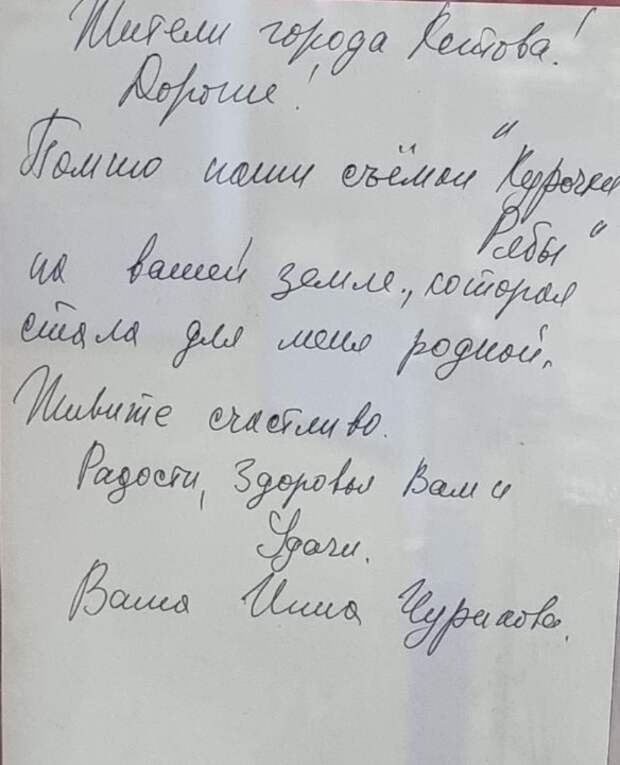 Жители города Кстова!
Дорогие!
Помню наши съёмки "Курочки
Рябы"
на вашей земле, которая
стала для меня родной.
Живите счастливо.
Радости, Здоровья Вам и
Удачи.
Ваша Инна Чурикова.